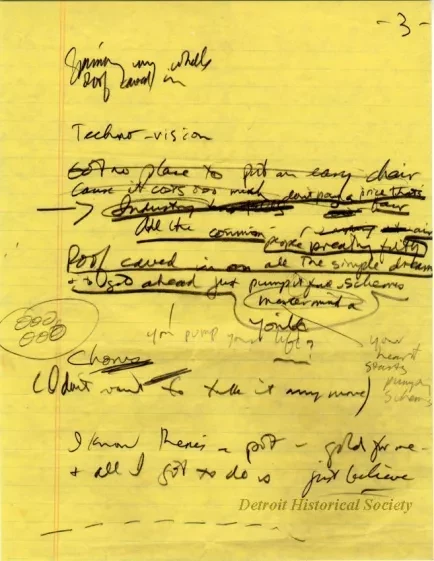 - 3 -
Spinning my wheels
Roof caved in
Techno-vision
Got no place to put an easy chair
Cause it costs too much don't pay a price that's fair
→ Industry
All the common people breathing filthy air
Roof caved in on all the simple dreams
+ to get ahead just pump the schemes
mastermind a
you pump your life?
your heart starts pumping schemes
Chorus
(I don't want to talk it any more)
I know there's a pot - gold for me -
+ all I got to do is just believe
Detroit Historical Society